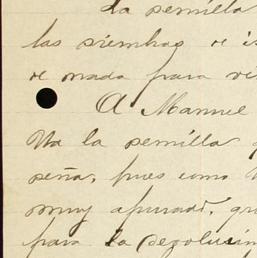 la semilla
las siembras
de nada para
A Manuel
Va la semilla
peña, pues como
muy apurado,
para la